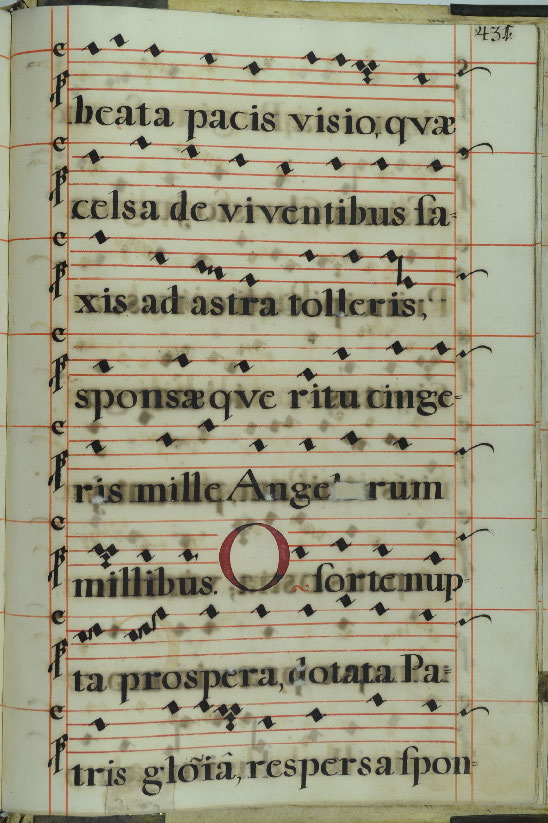 431
beata pacis visio, qvæ
celsa de viventibus ſa=
xis ad astra tolleris,
sponsæ qve ritu cinge=
ris mille Ange' rum
millibus. O sorte nup=
ta prospera, dotata Pa=
tris glo͂iâ, respersa ſpon=